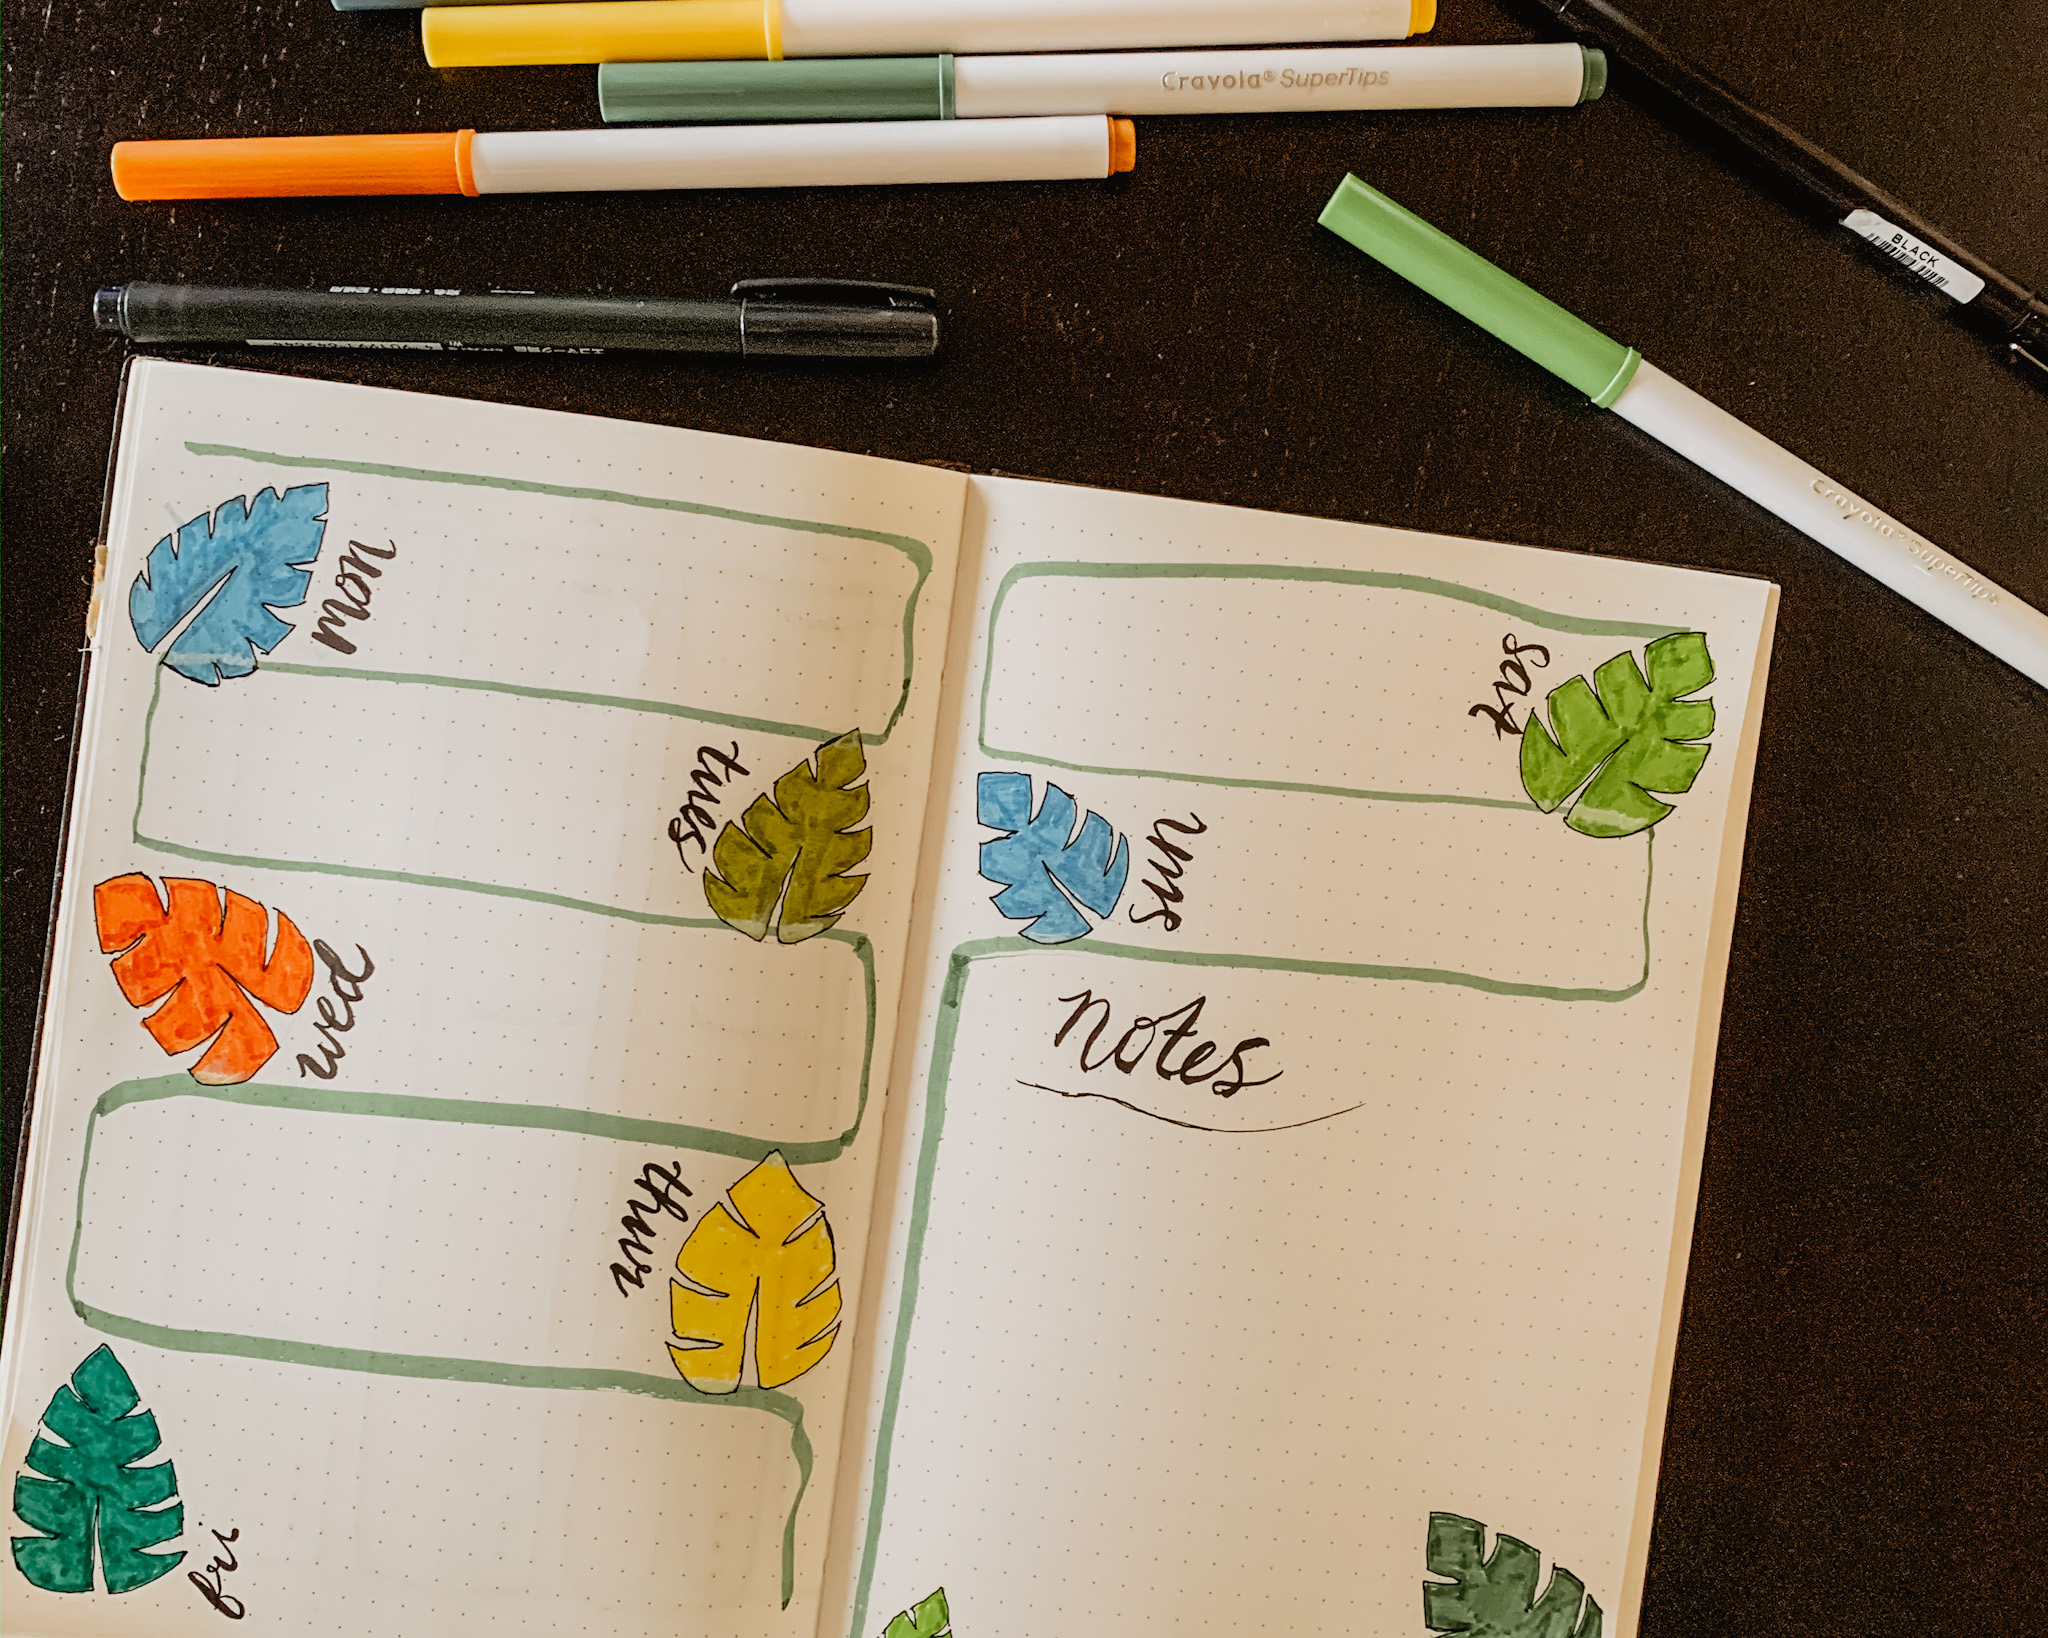 Crayola® SuperTips
BLACK
Crayola® SuperTips
mon
tues
wed
thur
fri
sat
sun
notes